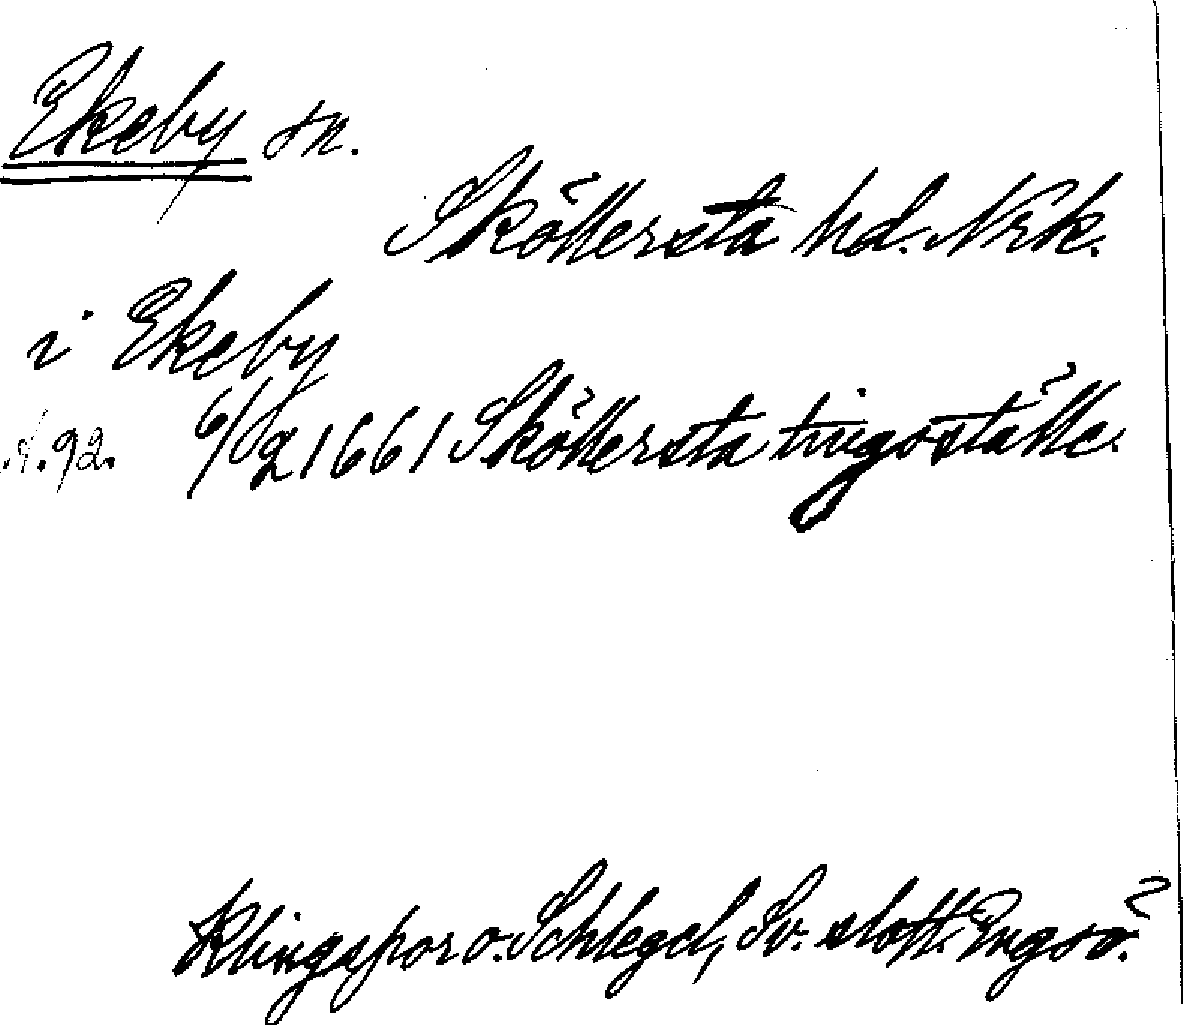 Ekeby sn.
Sköllersta hd. Nrk.
i Ekeby
s. 92. 6/2 1661 Sköllersta tingsställe.
Klingspor o. Schlegel, Sv. slott. Engsö.